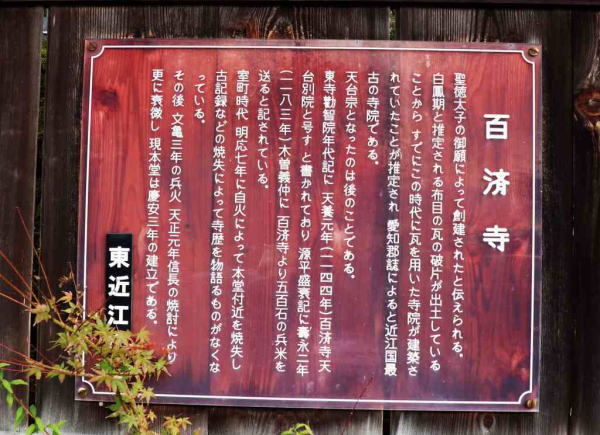 百済寺
聖徳太子の御願によって創建されたと伝えられる。
白鳳期と推定される布目の瓦の破片が出土している
ことから すでにこの時代に瓦を用いた寺院が建築さ
れていたことが推定され 愛知郡誌によると近江国最
古の寺院である。
天台宗となったのは後のことである。
東寺勸智院年代記に 天養元年(一一四四年)百済寺天
台別院と号す と書かれており 源平盛衰記に壽永二年
(一一八三年)木曽義仲に 百済寺より五百石の兵米を
送ると記されている。
室町時代 明応七年に自火によって本堂付近を焼失し
古記録などの焼失によって寺歴を物語るものがなくな
っている。
その後 文亀三年の兵火 天正元年信長の焼討により
更に衰微し 現本堂は慶安三年の建立である。
東近江